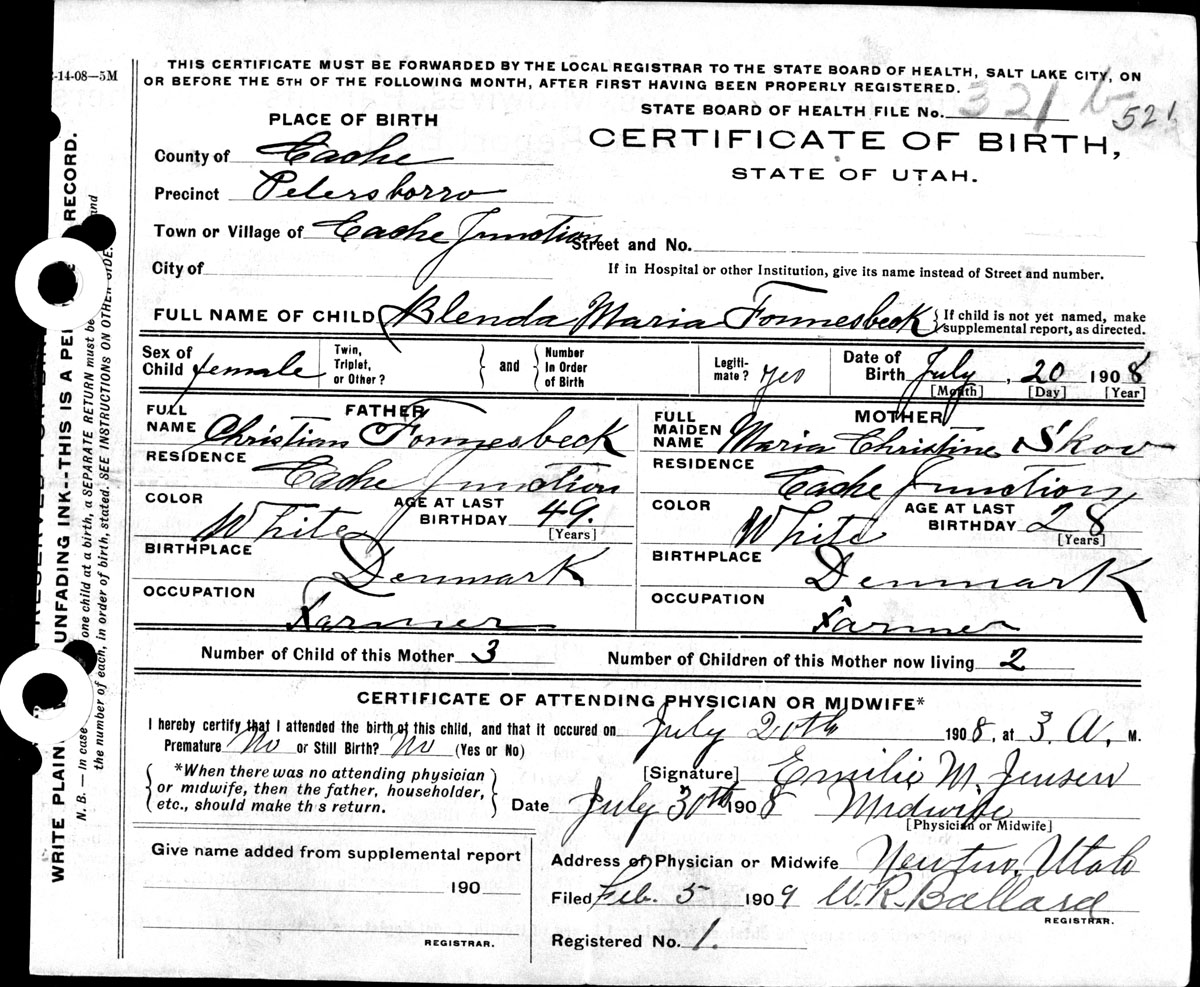 2-14-08—5M
THIS CERTIFICATE MUST BE FORWARDED BY THE LOCAL REGISTRAR TO THE STATE BOARD OF HEALTH, SALT LAKE CITY, ON
OR BEFORE THE 5TH OF THE FOLLOWING MONTH, AFTER FIRST HAVING BEEN PROPERLY REGISTERED.
STATE BOARD OF HEALTH FILE No. 321 b 521
PLACE OF BIRTH
CERTIFICATE OF BIRTH,
STATE OF UTAH.
County of Cache
Precinct Petersborro
Town or Village of Cache Junction Street and No.
City of
If in Hospital or other Institution, give its name instead of Street and number.
FULL NAME OF CHILD Blenda Maria Fonnesbeck { If child is not yet named, make
supplemental report, as directed.
Sex of Child female Twin, Triplet, or Other? } and { Number In Order of Birth Legiti-mate? yes Date of Birth July, 20 1908
[Month] [Day] [Year]
FATHER
FULL NAME Christian Fonnesbeck
RESIDENCE Cache Junction
COLOR White AGE AT LAST BIRTHDAY 49.
[Years]
BIRTHPLACE Denmark
OCCUPATION Farmer
MOTHER
FULL MAIDEN NAME Maria Christine Skov
RESIDENCE Cache Junction
COLOR White AGE AT LAST BIRTHDAY 28
[Years]
BIRTHPLACE Denmark
OCCUPATION Farmer
Number of Child of this Mother 3 Number of Children of this Mother now living 2
CERTIFICATE OF ATTENDING PHYSICIAN OR MIDWIFE*
I hereby certify that I attended the birth of this child, and that it occured on July 20th 1908, at 3. A. M.
Premature No or Still Birth? No (Yes or No)
{ *When there was no attending physician
or midwife, then the father, householder,
etc., should make th s return. }
[Signature] Emilie M. Jensen
Date July 30th 1908 Midwife
[Physician or Midwife]
Give name added from supplemental report
190
REGISTRAR.
Address of Physician or Midwife Newton, Utah
Filed Feb. 5 1909 W. R. Ballard
REGISTRAR.
Registered No. 1.
WRITE PLAIN UNFADING INK--THIS IS A PE RECORD.
N. B.—In case one child at a birth, a SEPARATE RETURN must be and
the number of each, in order of birth, stated. SEE INSTRUCTIONS ON OTHER SIDE.